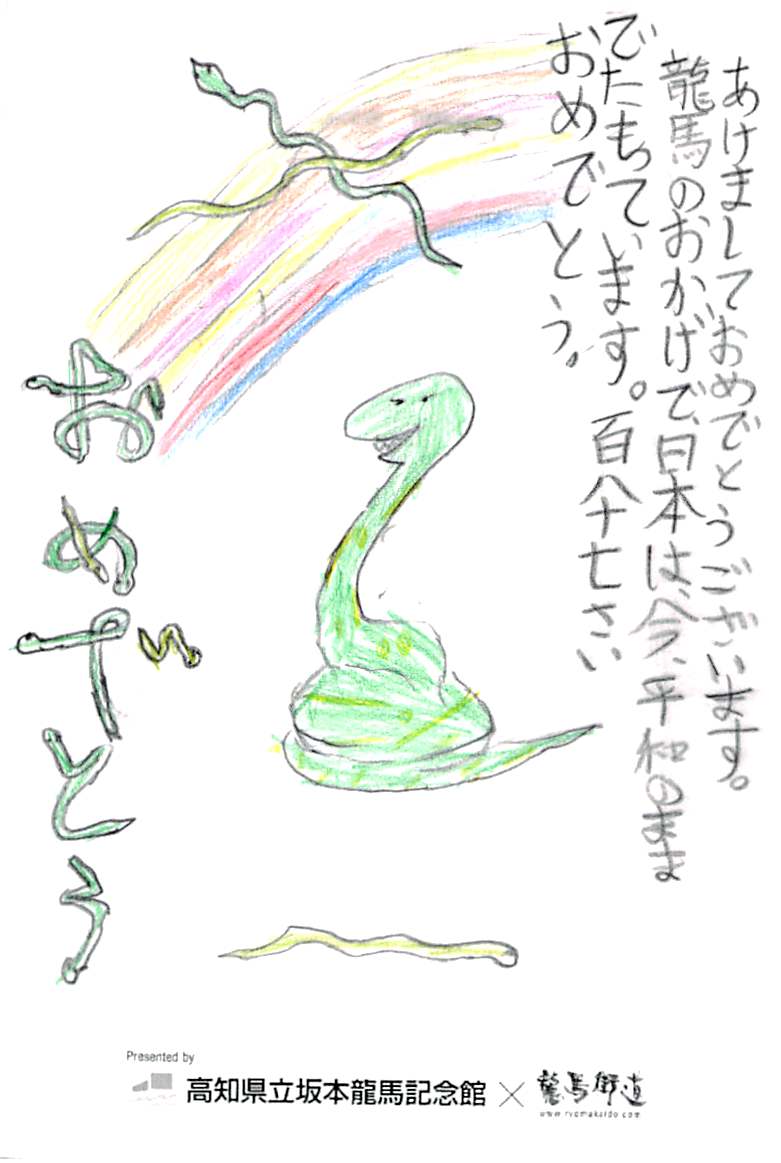 あけましておめでとうございます。
龍馬のおかげで、日本は、今、平和のまま
でたもています。百八十七さい
おめでとう。
おめでとう
Presented by
高知県立坂本龍馬記念館×龍馬街道
www.ryomakaido.com